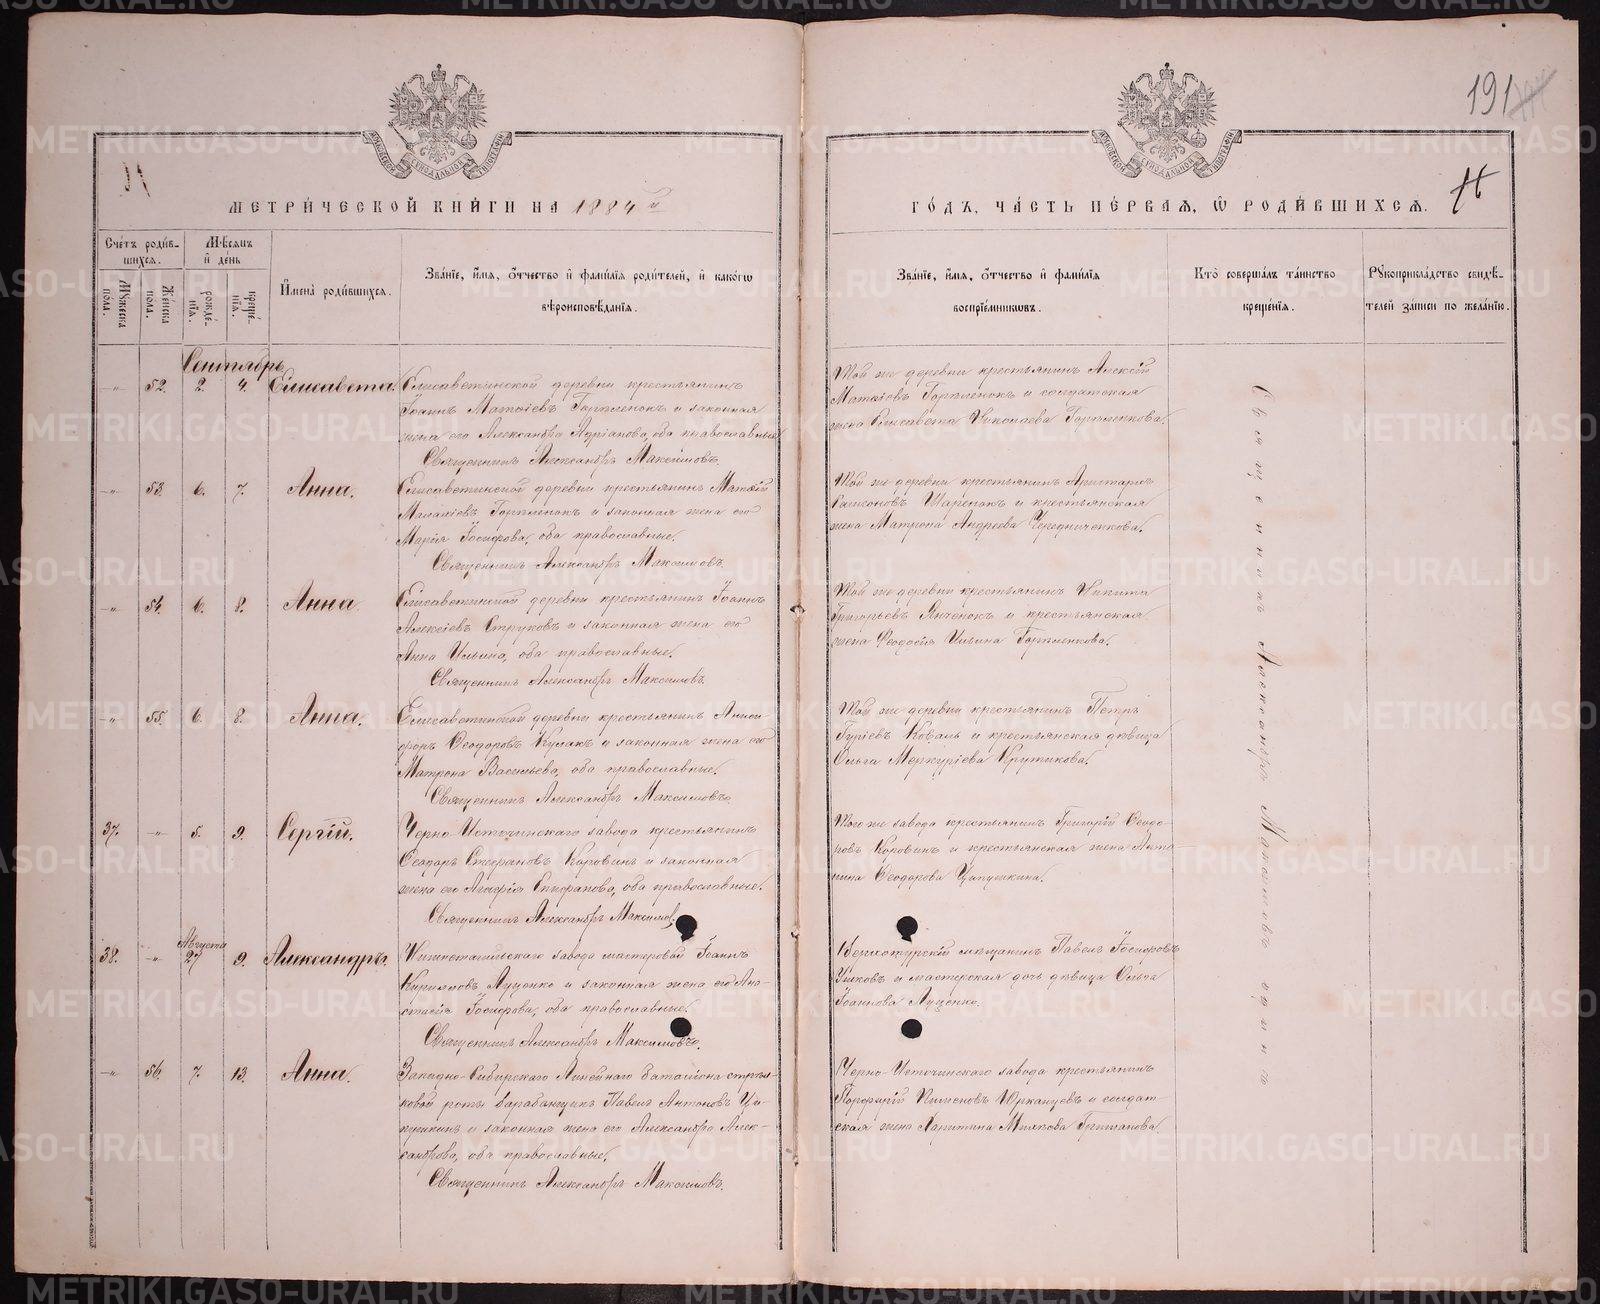 191
МЕТРИ́ЧЕСКОЙ КНИ́ГИ НА 1884 й
ГО́ДЪ, ЧА́СТЬ ПЕ́РВАЯ, Ѡ РОДИ́ВШИХСЯ.
Сче́тъ роди́в-
шихся.
Му́жеска
пола.
Же́нска
пола.
Мѣсяцъ
и́ де́нь
рожде́-
нїя.
креще́-
нїя.
И́мена̀ роди́вшихся.
Зва́нїе, и́мя, о́тчество и́ фами́лїя роди́телей, и́ како́гѡ
вѣроисповѣ́данїя.
Зва́нїе, и́мя, о́тчество и́ фами́лїя
воспрїе́мникѡвъ.
Кто̀ соверша́лъ та́инство
креще́нїя.
Рꙋкоприкла́дство свидѣ́-
телей за́писи по жела́нїю.
Сентябрь
52. 2. 4. Елисавета.
Елисаветинской деревни крестьянинъ
Іоаннъ Матѳіевъ Горпленокъ и законная
жена его Александра Адріанова, оба православные.
Священникъ Александръ Максимовъ.
Той же деревни крестьянинъ Алексій
Матѳіевъ Горпленокъ и солдатская
жена Елисавета Николаева Горпленкова.
53. 6. 7. Анна.
Елисаветинской деревни крестьянинъ Матѳій
Горпленокъ и законная жена его
Марія Іосифова, оба православные.
Священникъ Александръ Максимовъ.
Той же деревни крестьянинъ
и крестьянская
жена Матрона Андреева Чередниченкова.
54. 6. 8. Анна.
Елисаветинской деревни крестьянинъ Іоаннъ
Алексіевъ Струковъ и законная жена его
Анна Ильина, оба православные.
Священникъ Александръ Максимовъ.
Той же деревни крестьянинъ Никита
Григорьевъ Янченокъ и крестьянская
жена Ѳеодосія Ильина Горпленкова.
55. 6. 8. Анна.
Елисаветинской деревни крестьянинъ Аниси-
форъ Ѳеодоровъ Кулакъ и законная жена его
Матрона Васильева, оба православные.
Священникъ Александръ Максимовъ.
Той же деревни крестьянинъ Петръ
Гуріевъ Коваль и крестьянская дѣвица
Ольга Меркуріева Крутикова.
37. 5. 9. Сергій.
Черно-Источинскаго завода крестьянинъ
Ѳеодоръ Стефановъ Коровинъ и законная
жена его Агафія Епифанова, оба православные.
Священникъ Александръ Максимовъ.
Того же завода крестьянинъ Григорій Ѳеодо-
ровъ Коровинъ и крестьянская жена Анто-
нина Ѳеодорова Ципушкина.
Августа
38. 27 9. Александръ.
Нижнетагильскаго завода мастеровой Іоаннъ
Кирилловъ Луценко и законная жена его Ана-
стасія Іосифова, оба православные.
Священникъ Александръ Максимовъ.
Верхотурскій мѣщанинъ Павелъ Іосифовъ
Ушковъ и мастерская дочь дѣвица Ольга
Іоаннова Луценко.
56. 7. 13. Анна.
Западно-Сибирскаго Линейнаго баталіона стрѣл-
ковой роты барабанщикъ Павелъ Антоновъ Ци-
пушкинъ и законная жена его Александра Алек-
сандрова, оба православные.
Священникъ Александръ Максимовъ.
Черно-Источинскаго завода крестьянинъ
Порфирій Пименовъ Юрканцевъ и солдат-
ская жена Харитина Гришанова
Священникъ Александръ Максимовъ
METRIKI.GASO-URAL.RU